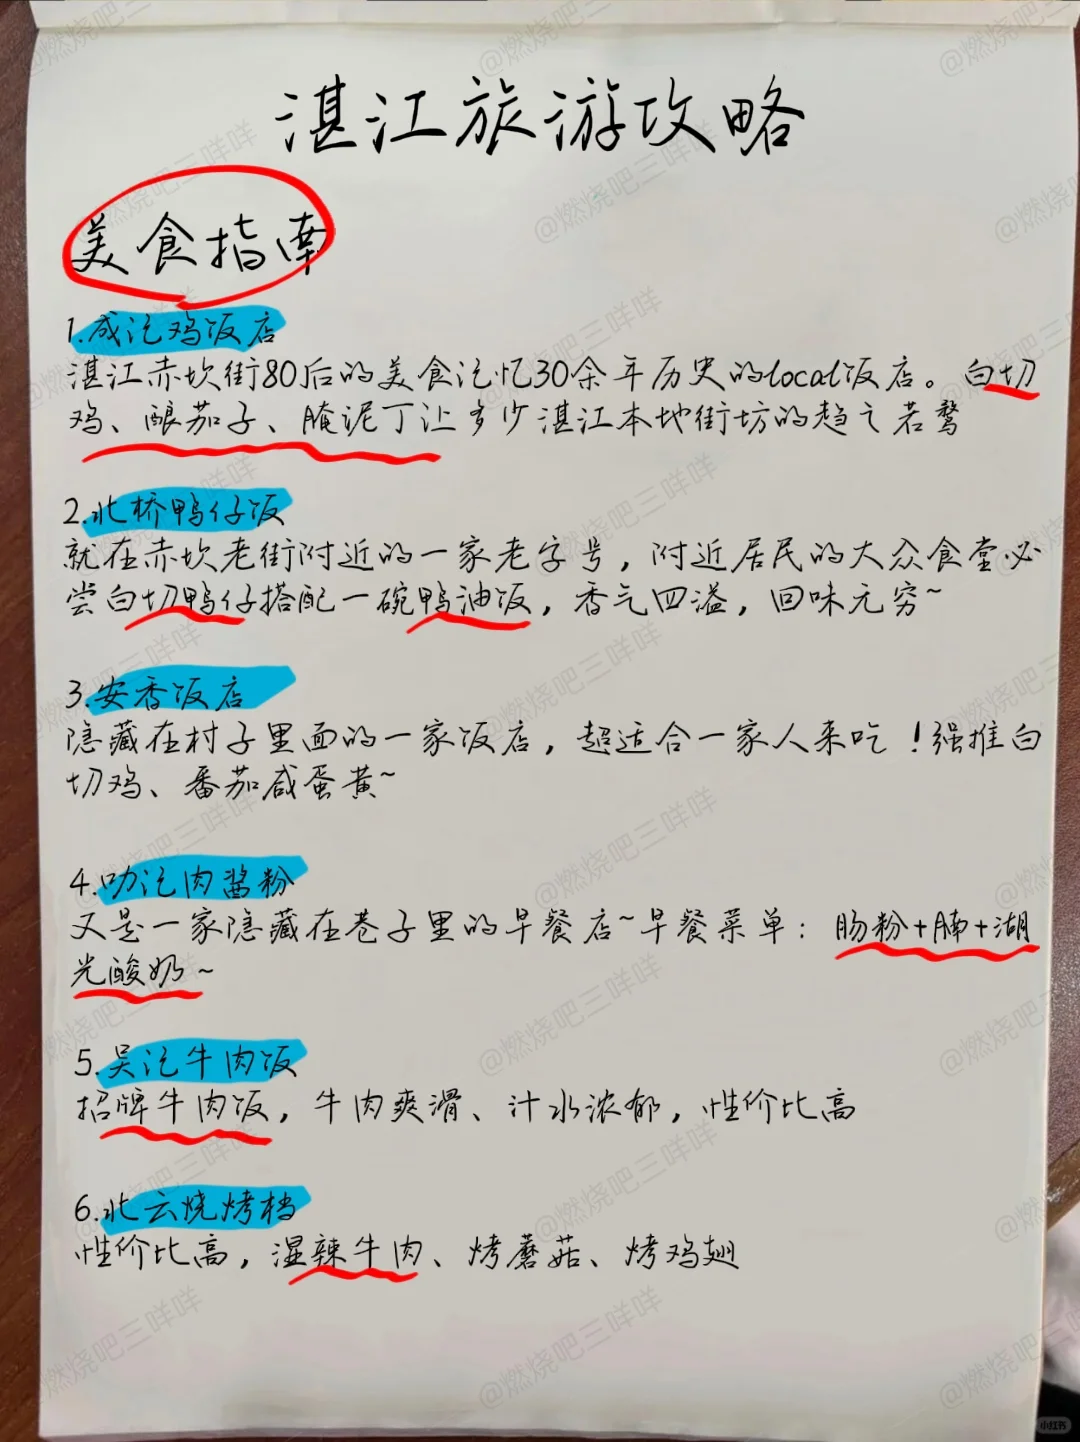 湛江旅游攻略
美食指南
1.成记鸡饭店
湛江赤坎街80后的美食记忆30余年历史的local饭店。白切
鸡、酿茄子、腌泥丁让多少湛江本地街坊的趋之若鹜
2.北桥鸭仔饭
就在赤坎老街附近的一家老字号，附近居民的大众食堂必
尝白切鸭仔搭配一碗鸭油饭，香气四溢，回味无穷~
3.安香饭店
隐藏在村子里面的一家饭店，超适合一家人来吃！强推白
切鸡、番茄咸蛋黄~
4.叻记肉酱粉
又是一家隐藏在巷子里的早餐店~早餐菜单：肠粉+腩+湖
光酸奶~
5.吴记牛肉饭
招牌牛肉饭，牛肉爽滑、汁水浓郁，性价比高
6.北云烧烤档
性价比高，湿辣牛肉、烤蘑菇、烤鸡翅
@燃烧吧三咩咩
小红书